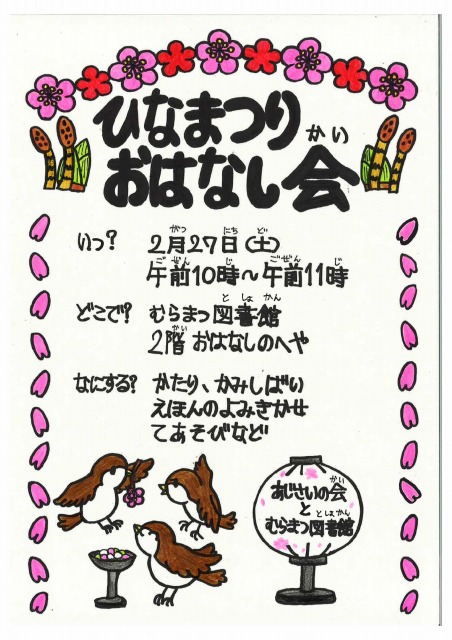 ひなまつり
おはなし会
かい
いつ?
2月27日(土)
がつ にち ど
午前10時～午前11時
ごぜん じ ごぜん じ
どこで?
むらまつ図書館
としょかん
2階 おはなしのへや
かい
なにする?
かたり、かみしばい
えほんのよみきかせ
てあそびなど
あじさいの会
かい
と
むらまつ図書館
としょかん